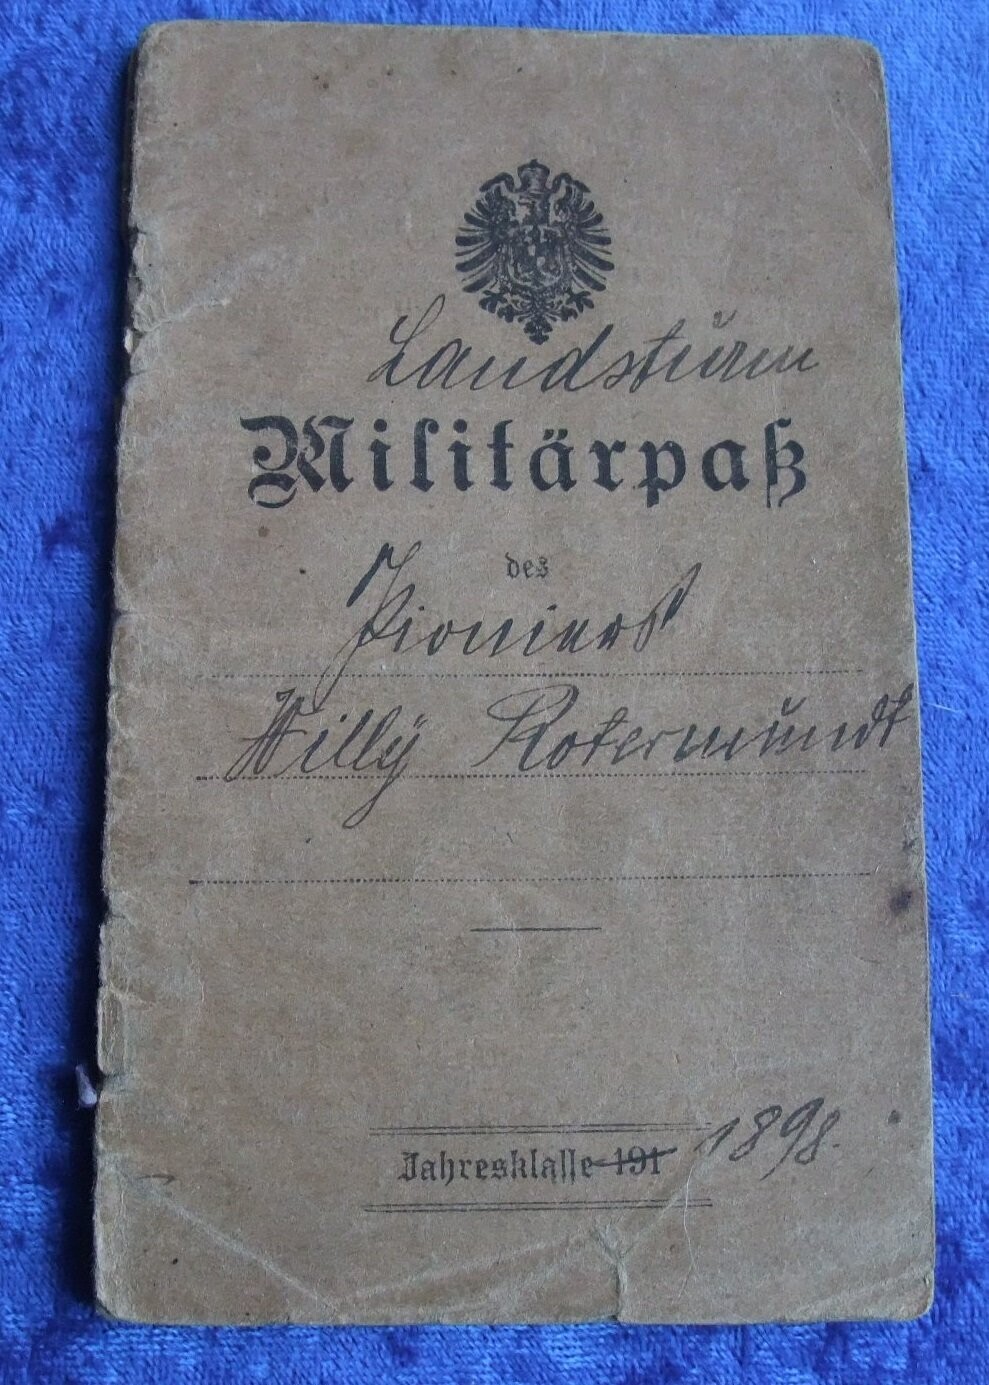 Landsturm
Militärpaß
des
Pioniers
Willy Rotermundt
Jahresklasse 191 1898.